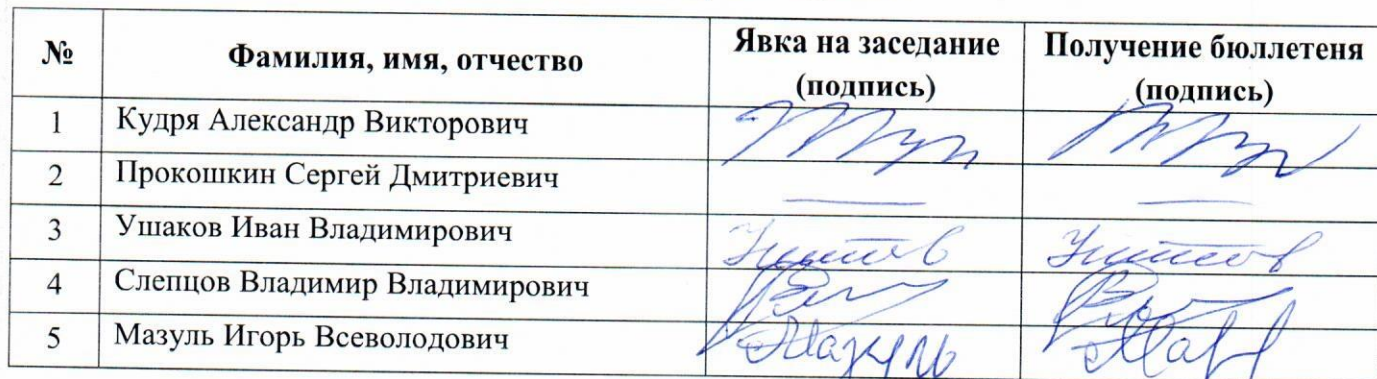 № Фамилия, имя, отчество Явка на заседание (подпись) Получение бюллетеня (подпись)
1 Кудря Александр Викторович
2 Прокошкин Сергей Дмитриевич — —
3 Ушаков Иван Владимирович
4 Слепцов Владимир Владимирович
5 Мазуль Игорь Всеволодович Мазуль